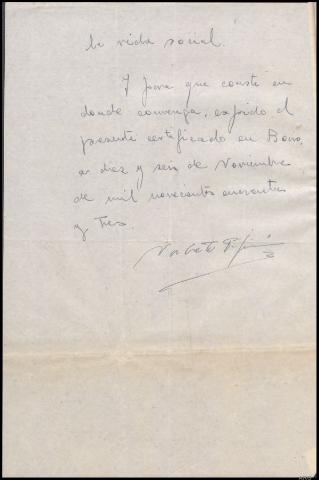 la vida social.
Y para que conste en
donde convenga, expido el
presente certificado en
a diez y seis de Noviembre
de mil novecientos cuarenta
y Tres.
Norberto